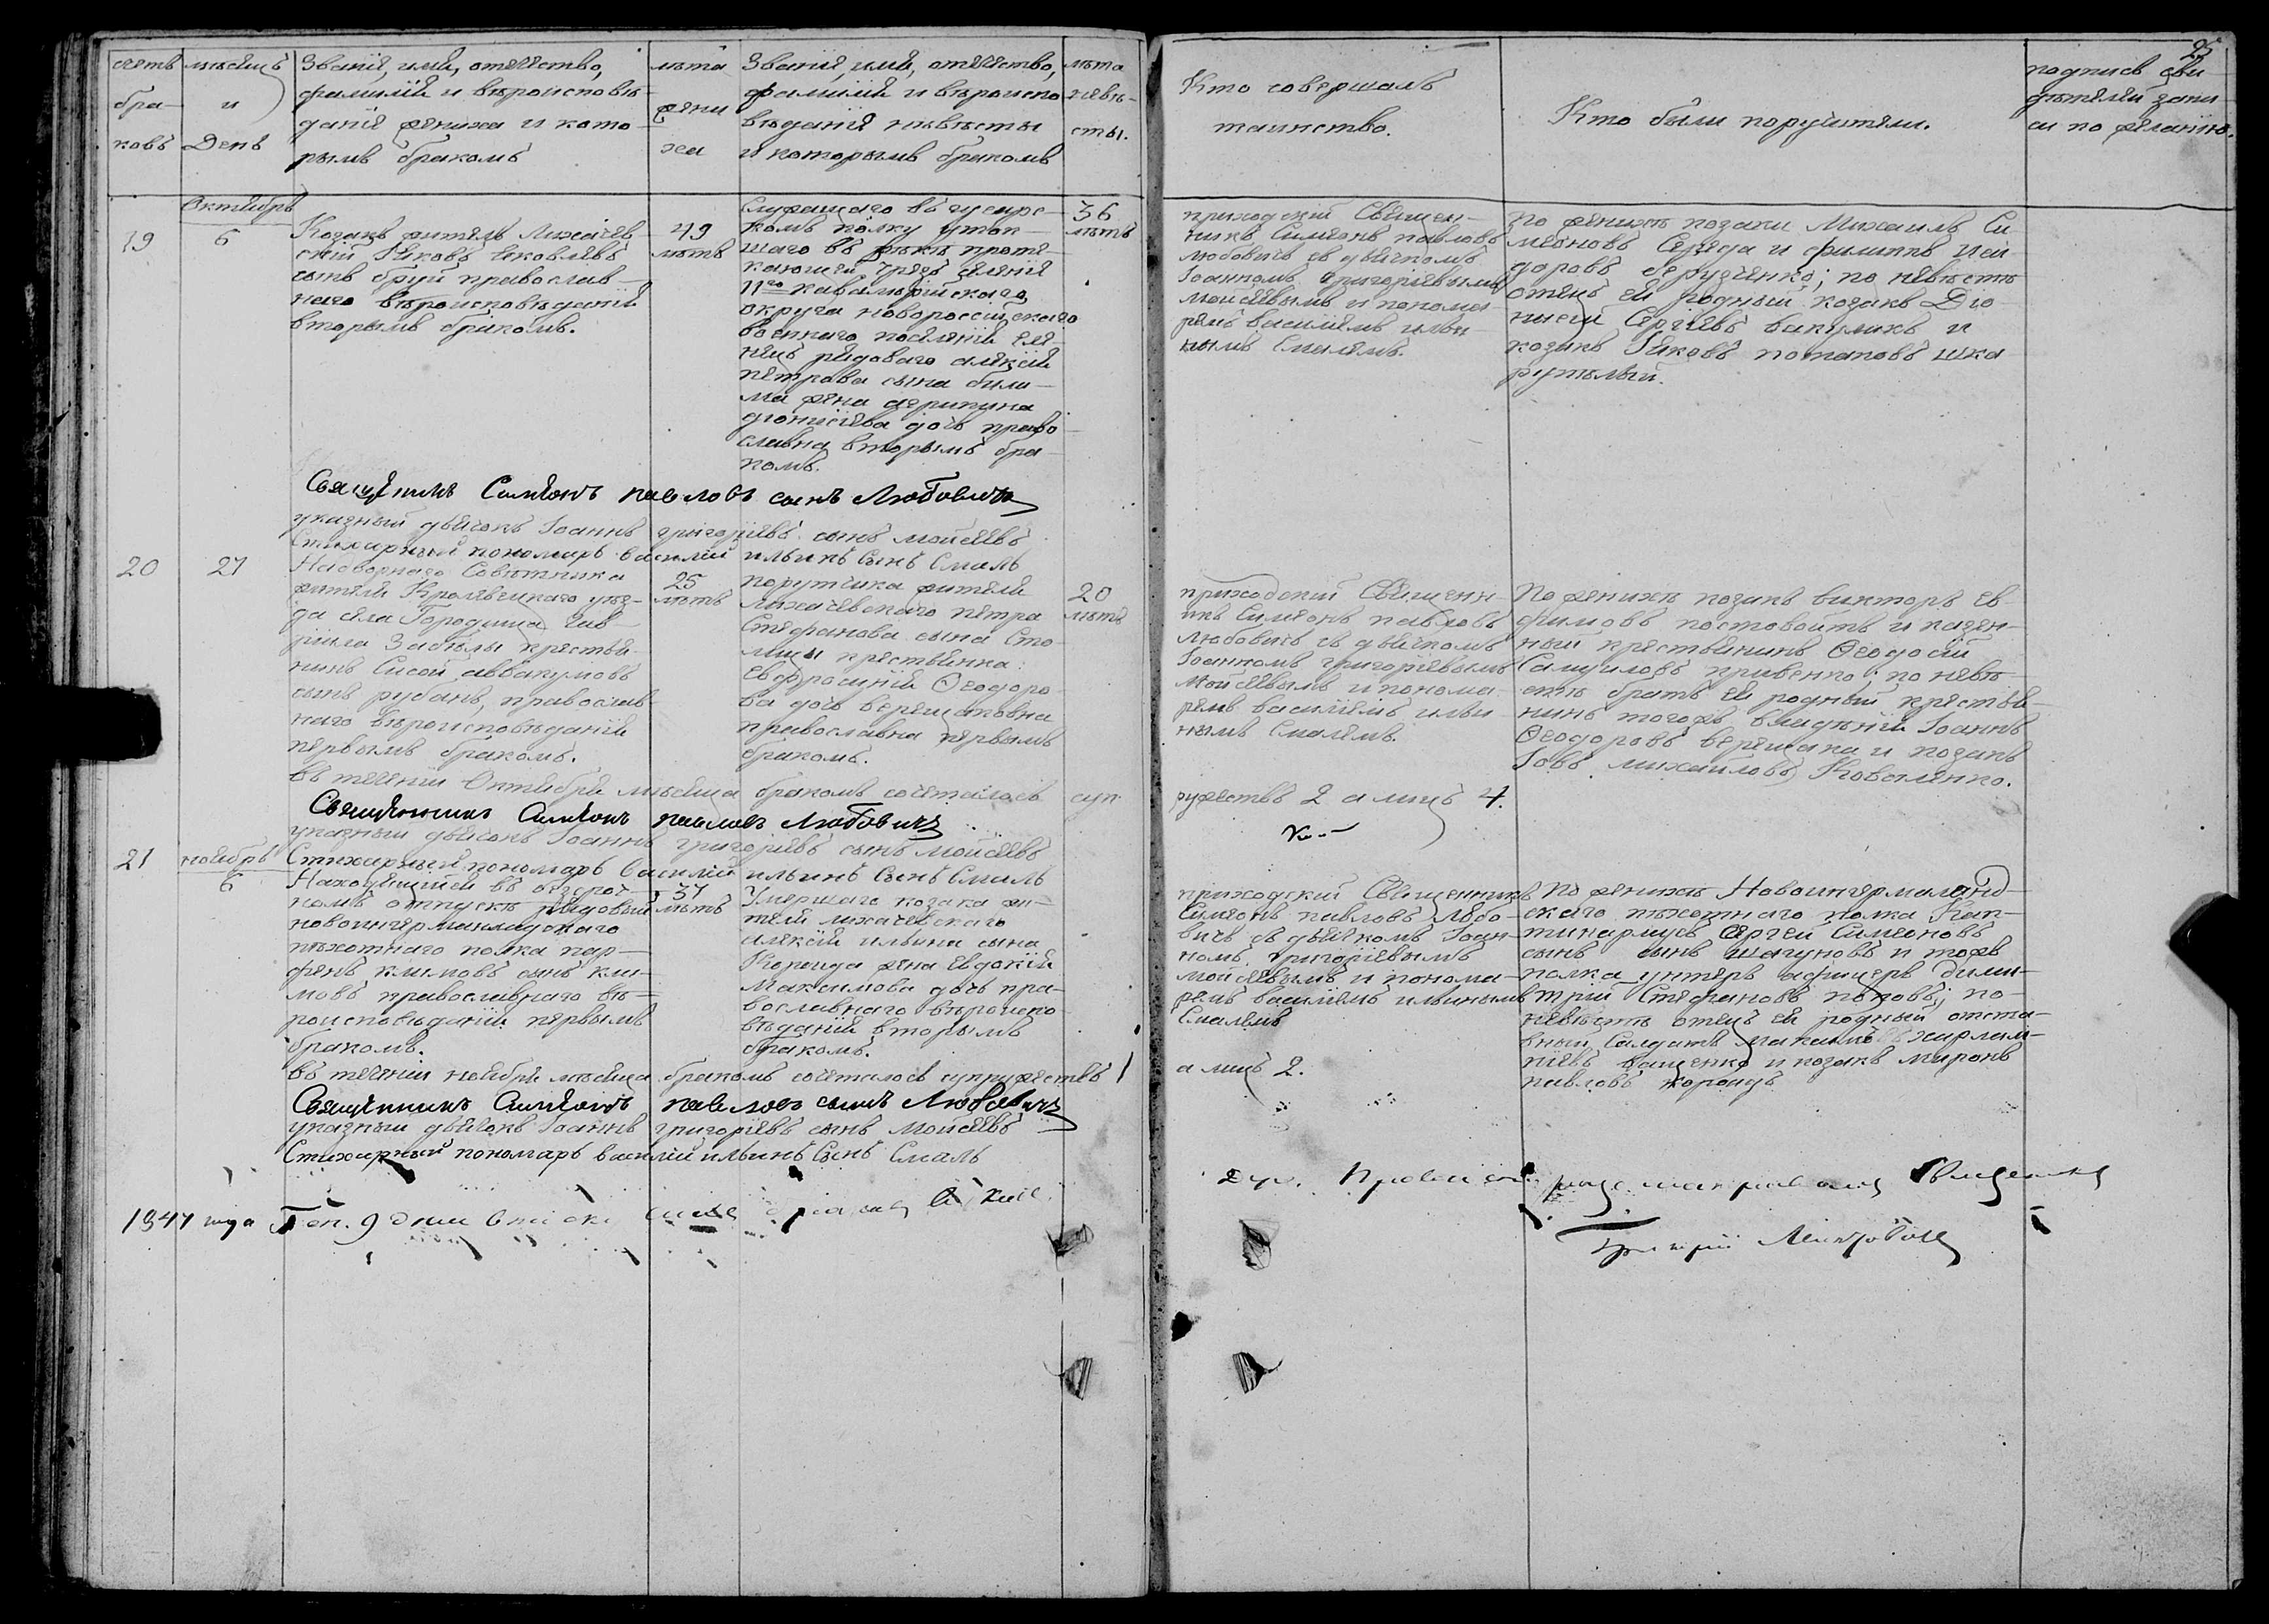 счетъ
бра-
ковъ
мѣсяцъ
и
День
Званіе, имя, отечество,
фамилія и вѣроисповѣ-
даніе жениха и кото-
рымъ бракомъ
лѣта
жени
ха
Званіе, имя, отечество,
фамилія и вѣроиспо
вѣданія невѣсты
и которымъ бракомъ
лѣта
невѣ-
сты.
Кто совершалъ
таинство.
Кто были поручители.
подпись сви-
дѣтелей запи-
си по желанію.
25
19
Октябрь
6
Козакъ житель Лихачев-
скій Яковъ Яковлевъ
сынъ бруй православ-
наго вѣроисповѣданія
вторымъ бракомъ.
49
лѣтъ
Служащаго въ гусарс-
комъ полку утоп-
шаго въ рѣкѣ проте-
кающей чрезъ селеніе
11го кавалерійскаго
округа новороссійскаго
военнаго поселенія
рядоваго алексія
петрова сына били-
ма жена
діонисіева дочь право
славна вторымъ бра-
комъ.
36
лѣтъ
приходскій Священ-
никъ Симеонъ павловъ
любовичъ съ дьячкомъ
Іоанномъ григоріевымъ
мойсеевымъ и понома
ремъ василіемъ ильи
нымъ Смалемъ.
По женихѣ козаки Михаилъ Си
меоновъ Середа и филиппъ Иси
доровъ; по невѣстѣ
отецъ ея родный козакъ Діо
нисій Сергіевъ вакуликъ и
козакъ Яковъ потаповъ шка
рупѣлый.
Священникъ Симеонъ павловъ сынъ Любовичъ
указный дьячокъ Іоаннъ григоріевъ сынъ мойсеевъ
Стихарный пономаръ василій ильинъ Сынъ Смаль
20
27
Надворнаго Совѣтника
жителя Кролевецкаго уѣз-
да села Городища Гав-
ріила Забѣлы крестья-
нинъ Сисой аввакумовъ
сынъ рубанъ, православ-
наго вѣроисповѣданія
первымъ бракомъ.
25
лѣтъ
порутчика жителя
лихачевскаго петра
Стефанова сына Сто-
лицы крестьянка
Евфросинія Ѳеодоро-
ва дочь верещаковна
православна первымъ
бракомъ.
20
лѣтъ
приходскій Священн-
икъ Симеонъ павловъ
любовичъ съ дьячкомъ
Іоанномъ григоріевымъ
мойсеевымъ и понома
ремъ василіемъ ильи
нымъ Смалемъ.
По женихѣ козакъ викторъ ев-
фимовъ постовойтъ и казен-
ный крестьянинъ Ѳеодосій
Самуиловъ кривенко; по невѣ
стѣ братъ ея родный крестья-
нинъ тогожъ владѣнія Іоаннъ
Ѳеодоровъ верещака и козакъ
Іовъ михайловъ Коваленко.
въ теченіи Октября мѣсяца бракомъ сочеталось суп
ружествъ 2 а лицъ 4.
Священникъ Симеонъ павловъ Любовичъ
указный дьячокъ Іоаннъ григоріевъ сынъ мойсеевъ
Стихарный пономаръ василій ильинъ Сынъ Смаль
21
ноябрь
6
Находящійся въ безсроч-
номъ отпускѣ рядовый
новоингерманландскаго
пѣхотнаго полка пар-
фенъ климовъ сынъ кли-
мовъ православнаго вѣ-
роисповѣданія первымъ
бракомъ.
37
лѣтъ
Умершаго козака жи-
теля лихачевскаго
алексія ильина сына
Короида жена Евдокія
Максимова дочь пра-
вославнаго вѣроиспо-
вѣданія вторымъ
бракомъ.
приходскій Священникъ
Симеонъ павловъ любо-
вичъ съ дьячкомъ Іоан-
номъ григоріевымъ
мойсеевымъ и понома-
ремъ василіемъ ильинымъ
Смалемъ
По женихѣ Новоингермаланд-
скаго пѣхотнаго полка Кап-
тинармусъ Сергей Симеоновъ
сынъ сынъ шагуновъ и тожъ
полка унтеръ афицеръ дими-
трій Стефановъ поповъ; по-
невѣстѣ отецъ ея родный отста-
вный Салдатъ харлам-
піевъ ващенко и козакъ миронъ
павловъ короидъ
въ теченіи ноября мѣсяца бракомъ сочеталось супружествъ 1
а лицъ 2.
Священникъ Симеонъ павловъ сынъ Любовичъ
указный дьячокъ Іоаннъ григоріевъ сынъ Мойсеевъ
Стихарный пономаръ василій ильинъ Сынъ Смаль
1847 года Ген. 9 дня